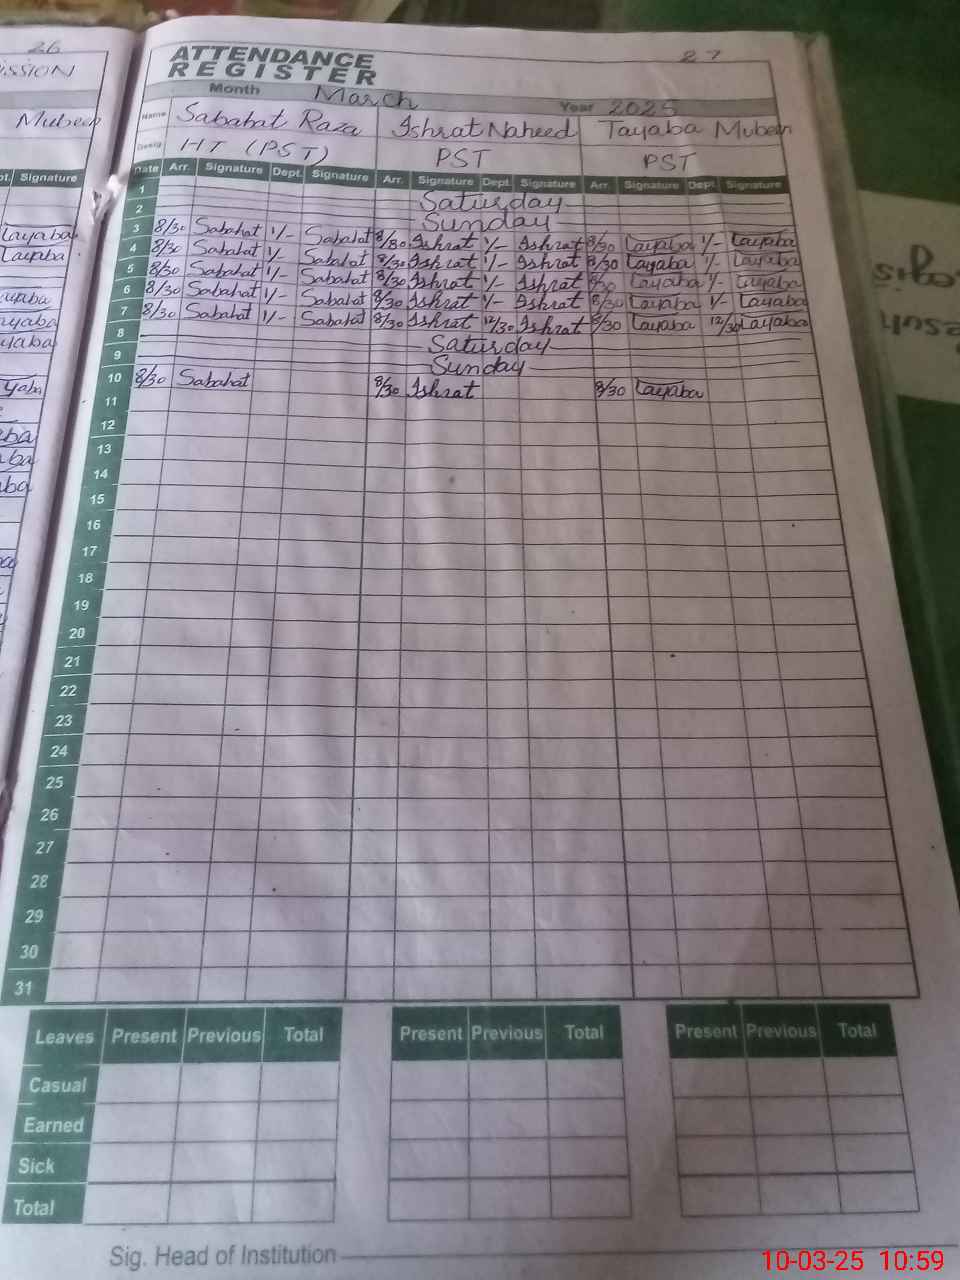 26
27
ISSION
ATTENDANCE
REGISTER
Month March Year 2025
Mubeen
Name Sababat Raza Ishrat Naheed Tayaba Mubeen
Desig. HT (PST) PST PST
pt. Signature
Date Arr. Signature Dept. Signature Arr. Signature Dept. Signature Arr. Signature Dept. Signature
1 Saturday
2 Sunday
3 8/30 Sabahat 1/- Sabahat 8/30 Ishrat 1/- Ishrat 8/30 Tayaba 1/- Tayaba
4 8/30 Sabahat 1/- Sabahat 8/30 Ishrat 1/- Ishrat 8/30 Tayaba 1/- Tayaba
5 8/30 Sabahat 1/- Sabahat 8/30 Ishrat 1/- Ishrat 8/30 Tayaba 1/- Tayaba
6 8/30 Sabahat 1/- Sabahat 8/30 Ishrat 1/- Ishrat 8/30 Tayaba 1/- Tayaba
7 8/30 Sabahat 1/- Sabahat 8/30 Ishrat 12/30 Ishrat 8/30 Tayaba 12/30 Tayaba
8 Saturday
9 Sunday
10 8/30 Sabahat 8/30 Ishrat 8/30 Tayaba
11
12
13
14
15
16
17
18
19
20
21
22
23
24
25
26
27
28
29
30
31
Leaves Present Previous Total Present Previous Total Present Previous Total
Casual
Earned
Sick
Total
Sig. Head of Institution
10-03-25 10:59